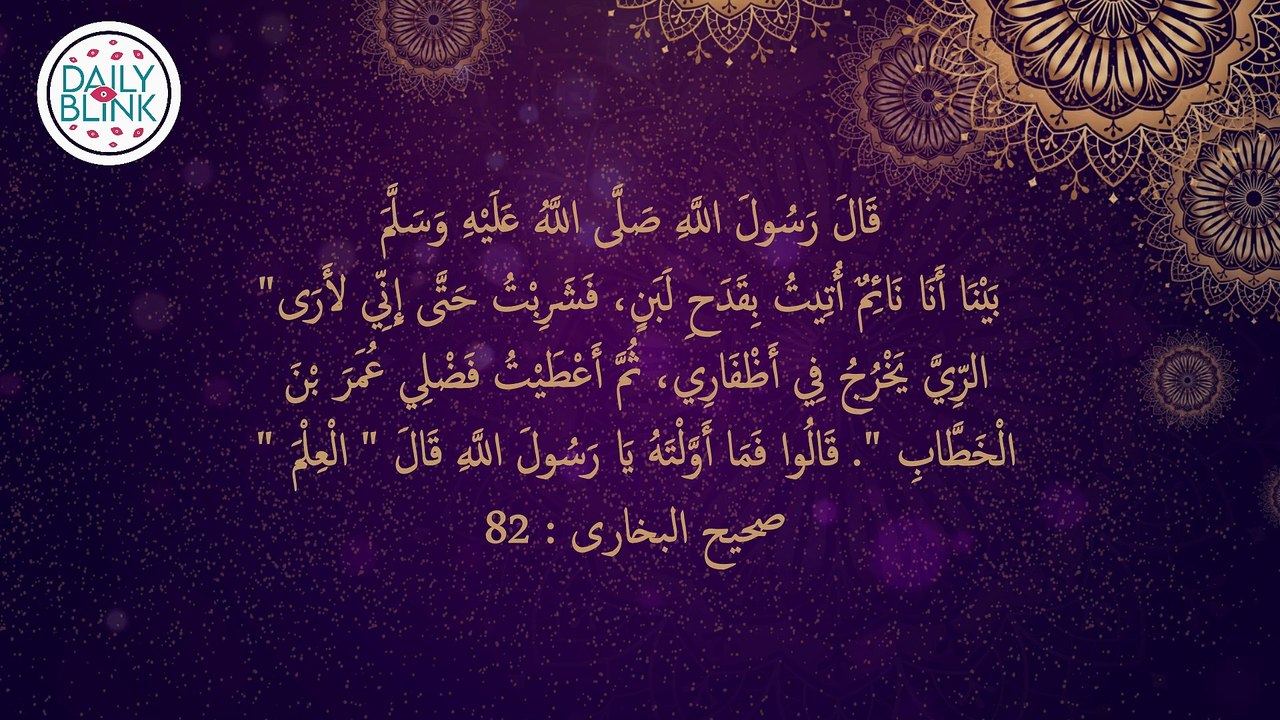 DAILY
BLINK
قَالَ رَسُولَ اللَّهِ صَلَّى اللَّهُ عَلَيْهِ وَسَلَّمَ
بَيْنَا أَنَا نَائِمٌ أُتِيتُ بِقَدَحِ لَبَنٍ، فَشَرِبْتُ حَتَّى إِنِّي لأَرَى"
الرِّيَّ يَخْرُجُ فِي أَظْفَارِي، ثُمَّ أَعْطَيْتُ فَضْلِي عُمَرَ بْنَ
الْخَطَّابِ ". قَالُوا فَمَا أَوَّلْتَهُ يَا رَسُولَ اللَّهِ قَالَ " الْعِلْمَ "
صحيح البخارى : 82